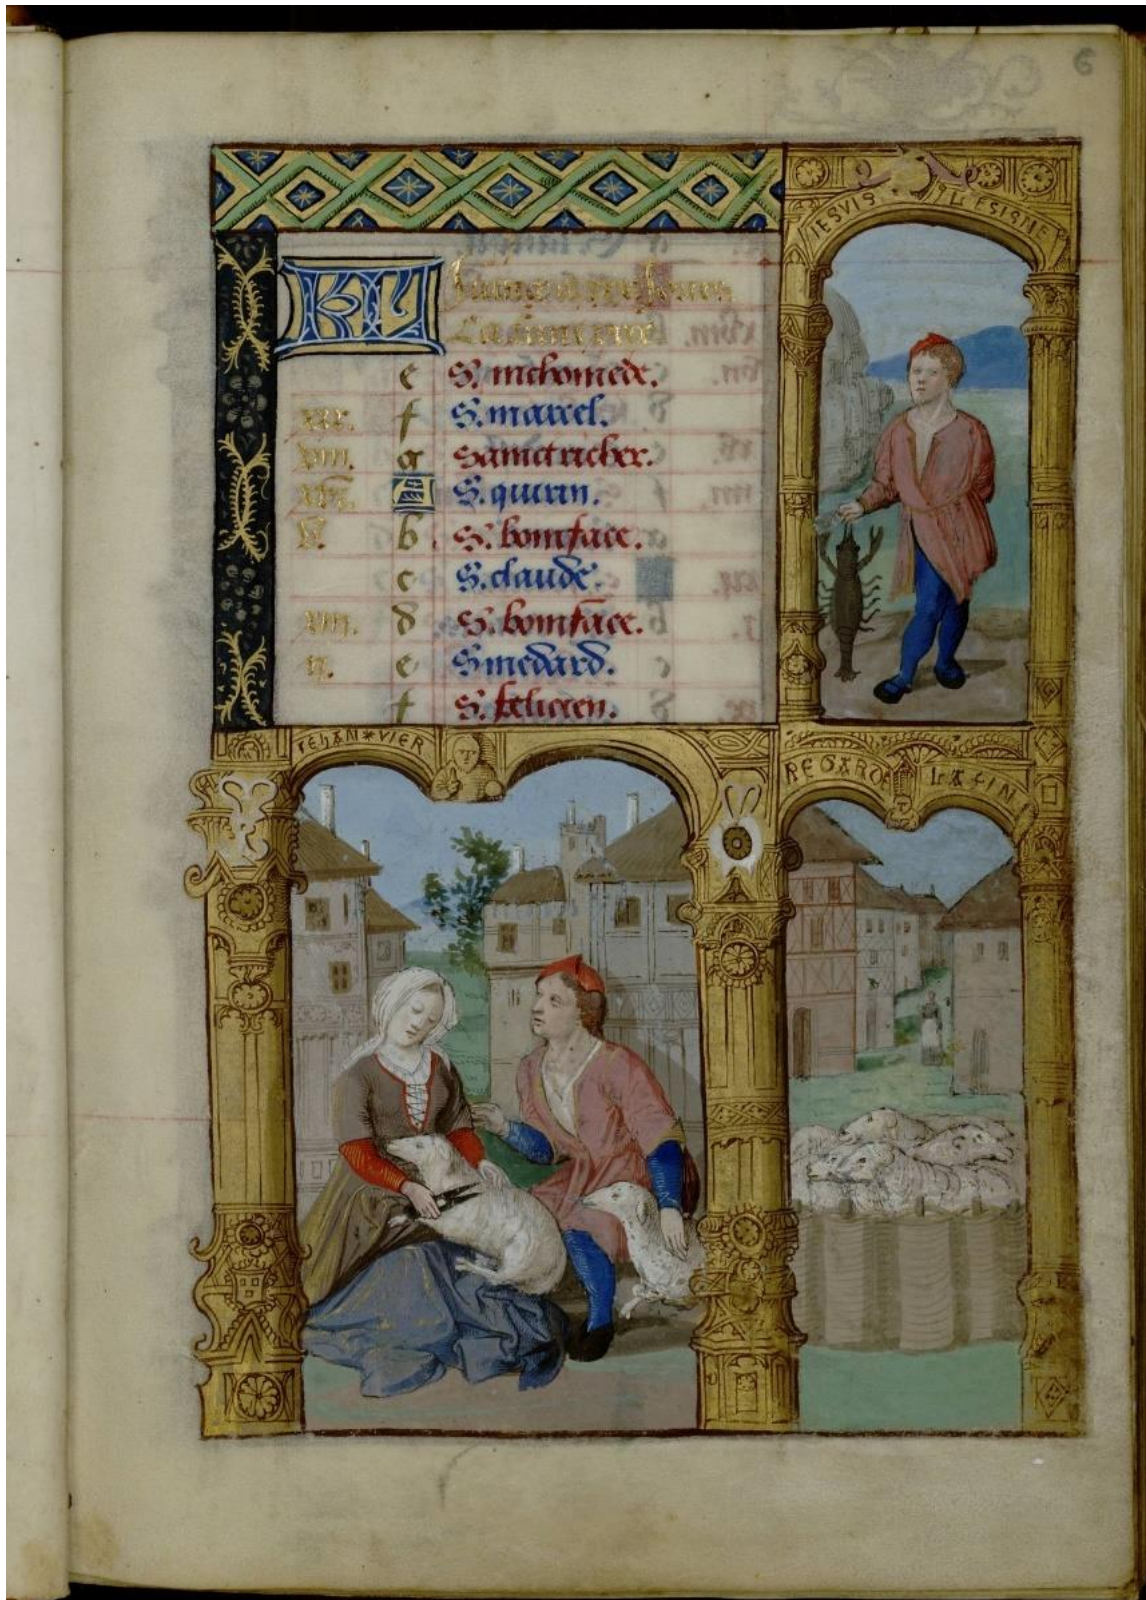 6
IESVIS LESIGNE
KL Juing a xxx jours
La lune xxix
e S. nichomede.
xix. f S. marcel.
viii. g Sainct richer.
xvi. A S. quirin.
v. b S. boniface.
c S. claude.
xiii. d S. boniface.
ii. e S medard.
f S. felicien.
IEHAN VIER
REGARD LA FIN